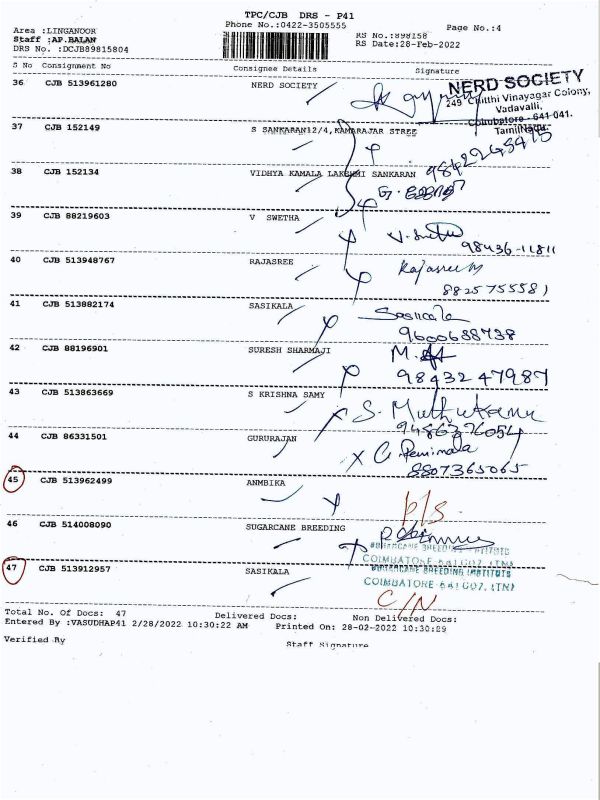 TPC/CJB DRS - P41
Phone No.:0422-3505555
Page No.:4
Area :LINGANOOR
Staff :AP.BALAN
DRS No. :DCJB89815804
RS No.:898158
RS Date:28-Feb-2022
S No Consignment No Consignee Details Signature
36 CJB 513961280 NERD SOCIETY
NERD SOCIETY
249 Chitthi Vinayagar Colony,
Vadavalli,
Coimbatore - 641 041.
TamilNadu.
37 CJB 152149 S SANKARAN12/4,KAMARAJAR STREE
38 CJB 152134 VIDHYA KAMALA LAKSHMI SANKARAN
39 CJB 88219603 V SWETHA
98436-11811
40 CJB 513948767 RAJASREE
Rajasree M
8825755581
41 CJB 513882174 SASIKALA
Sasikala
9600688738
42 CJB 88196901 SURESH SHARMAJI
9843247987
43 CJB 513863669 S KRISHNA SAMY
S. Muthukannu
9486376054
44 CJB 86331501 GURURAJAN
8807365065
45 CJB 513962499 ANMBIKA
46 CJB 514008090 SUGARCANE BREEDING
SUGARCANE BREEDING INSTITUTE
COIMBATORE-641 007. (TN)
47 CJB 513912957 SASIKALA
SUGARCANE BREEDING INSTITUTE
COIMBATORE-641 007. (TN)
C/N
Total No. Of Docs: 47 Delivered Docs: Non Delivered Docs:
Entered By :VASUDHAP41 2/28/2022 10:30:22 AM Printed On: 28-02-2022 10:30:89
Verified By Staff Signature